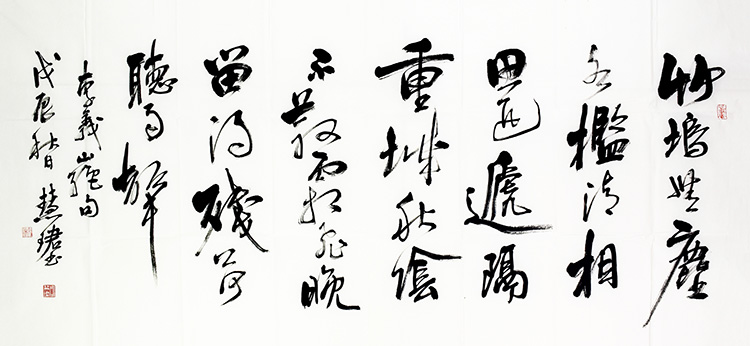 竹塢無塵
水檻清相
思迢遞隔
重城秋陰
不散霜飛晚
留得殘荷
聽雨聲
李義山絕句
戊辰秋日 慧珺